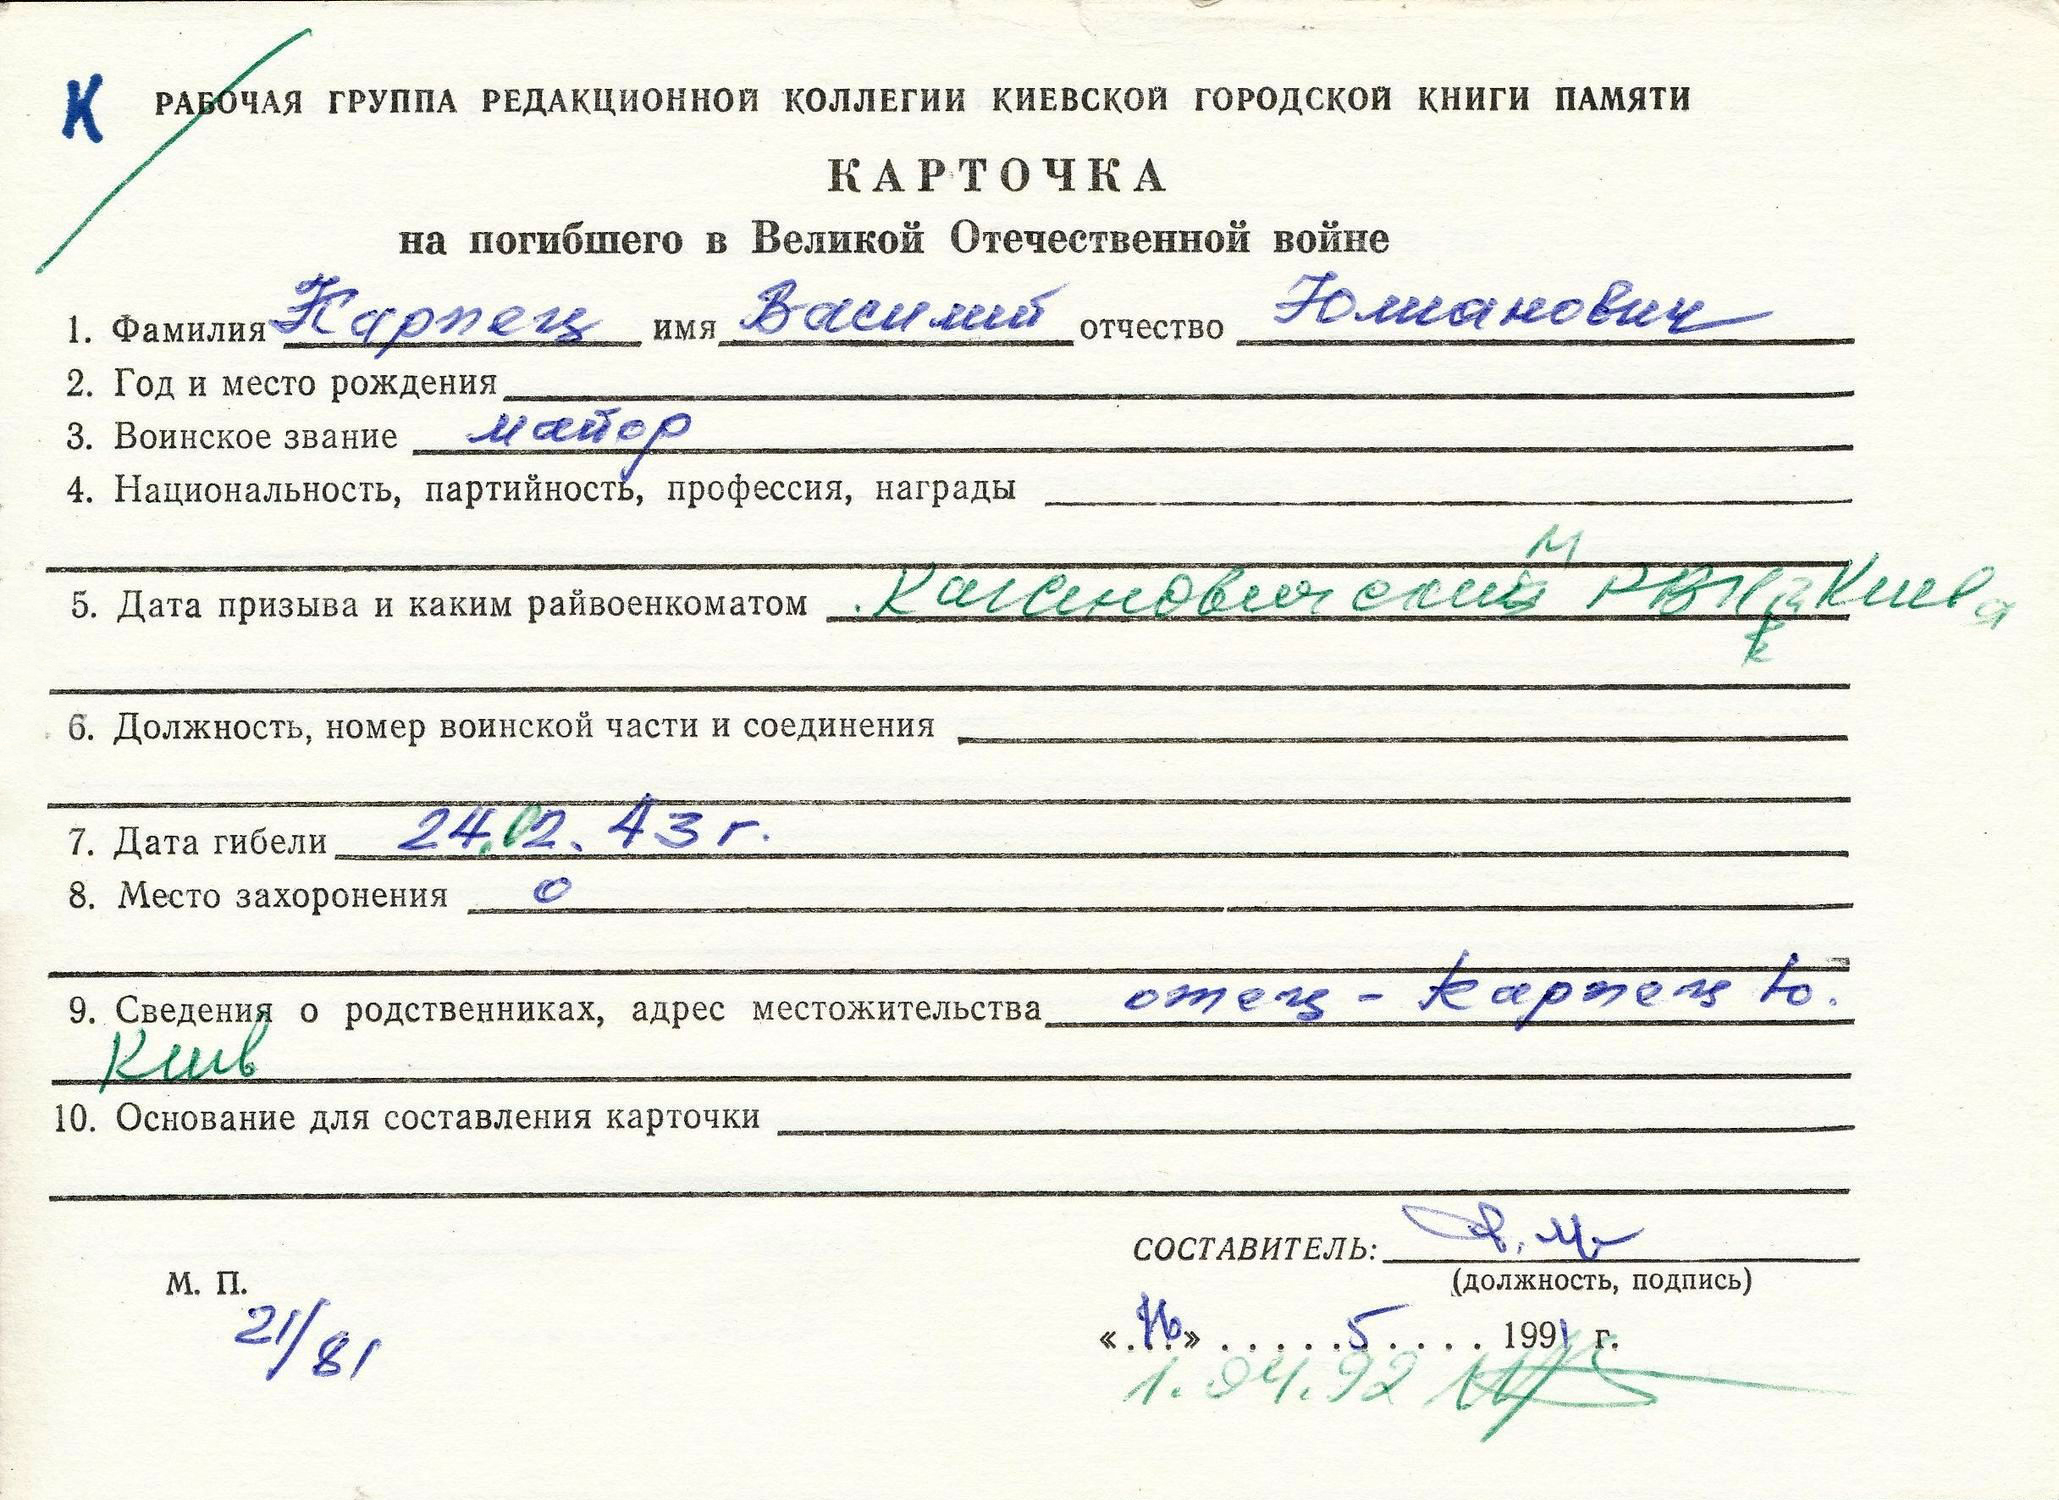 К
РАБОЧАЯ ГРУППА РЕДАКЦИОННОЙ КОЛЛЕГИИ КИЕВСКОЙ ГОРОДСКОЙ КНИГИ ПАМЯТИ
КАРТОЧКА
на погибшего в Великой Отечественной войне
1. Фамилия Карпец имя Василий отчество Юлианович
2. Год и место рождения
3. Воинское звание майор
4. Национальность, партийность, профессия, награды
5. Дата призыва и каким райвоенкоматом Кагановическим РВК Киева
6. Должность, номер воинской части и соединения
7. Дата гибели 24.02.43 г.
8. Место захоронения о
9. Сведения о родственниках, адрес местожительства отец - Карпец Ю.
Киев
10. Основание для составления карточки
СОСТАВИТЕЛЬ:
(должность, подпись)
М. П.
21/81
«16» . . . . . 5 . . . . 1991 г.
1.04.92